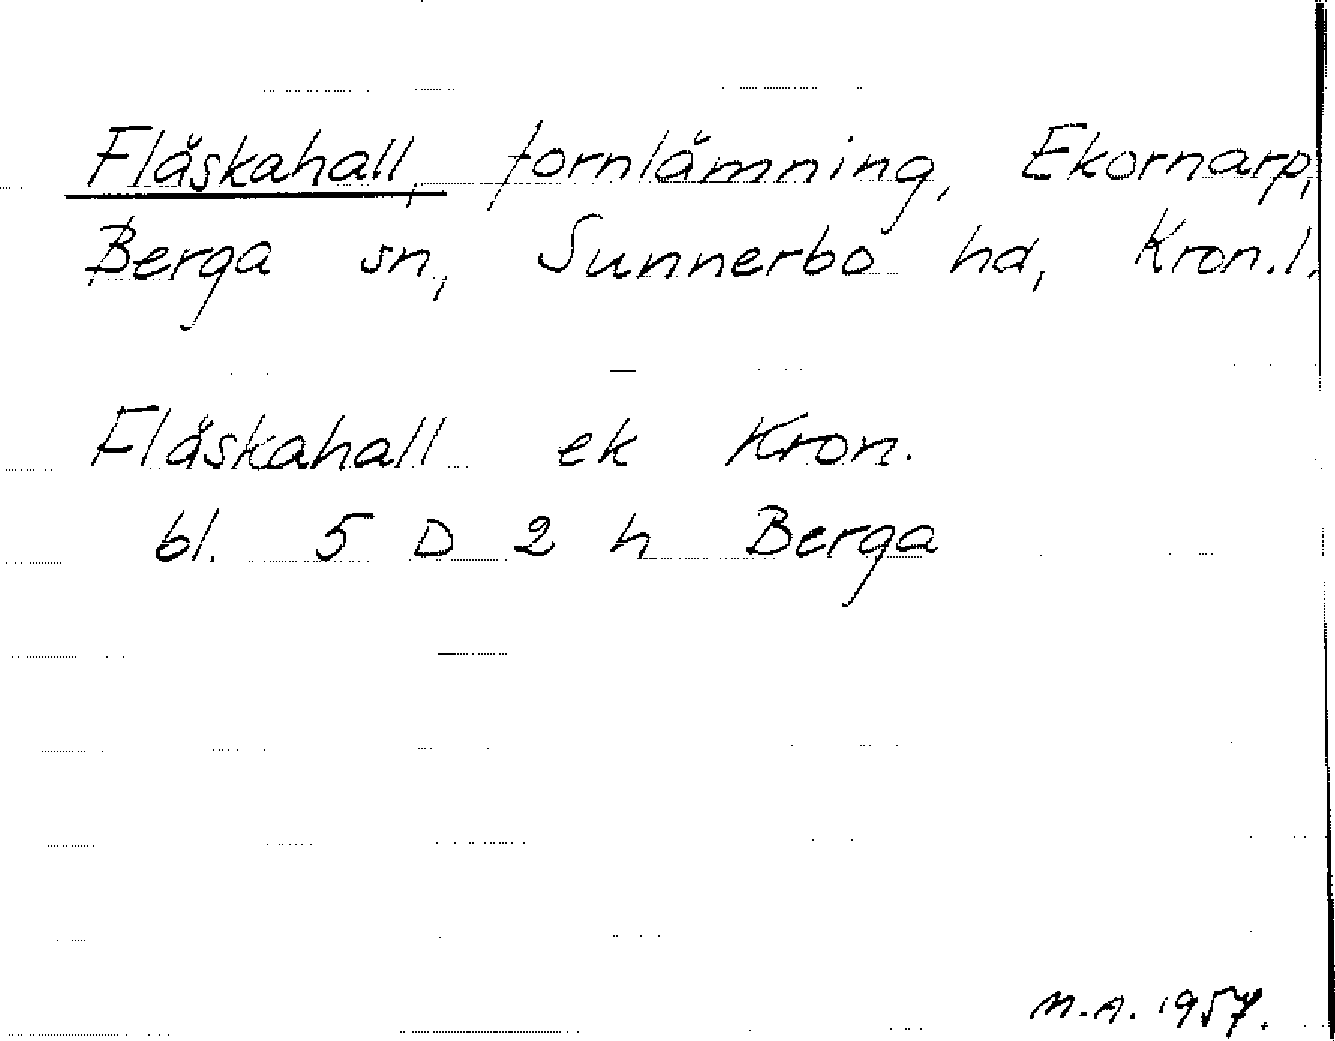 Fläskahall, fornlämning, Ekornarp,
Berga sn, Sunnerbo hd, Kron.l.
Fläskahall ek Kron.
bl. 5 D 2 h Berga
M.A. 1957.